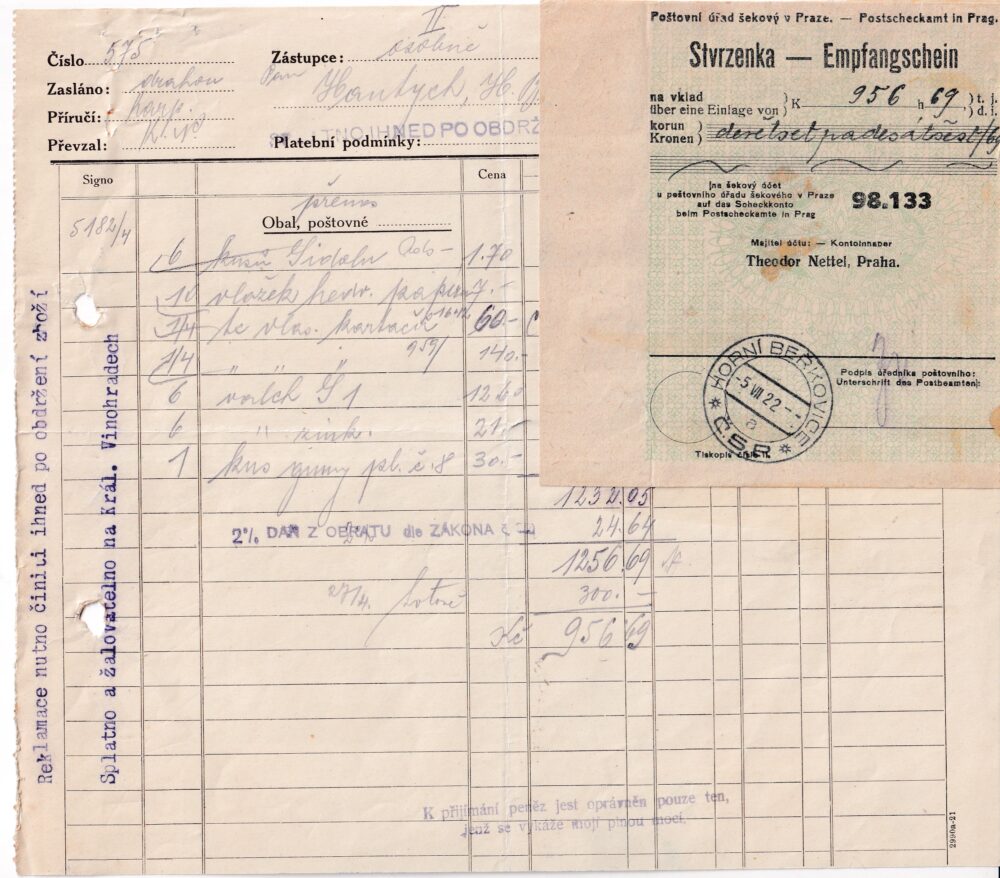 II
Číslo 575
Zástupce: osobně
Zasláno: drahou
Pan
Hantych, H.
Příručí:
IHNED PO OBDRŽ
Převzal:
Platební podmínky:
Signo
Cena
přenos
5182/4
Obal, poštovné
6 kusů Sidolu 1.70
10 vložek 7.-
1/4 tc vlas. kartáčů 60.-
1/4 " " 959/ 140.-
6 valch G 1 12.60
6 " zink. 21.-
1 kus gumy pl. č. 8 30.-
1232.05
2% DAŇ Z OBRATU dle ZÁKONA č.
24.64
1256.69
27/4.
300.-
Kč 956 69
K přijímání peněz jest oprávněn pouze ten,
jenž se vykáže mojí plnou mocí.
2990a-21
Reklamace nutno činiti ihned po obdržení zboží
Splatno a žalovatelno na Král. Vinohradech
Poštovní úřad šekový v Praze. — Postscheckamt in Prag.
Stvrzenka — Empfangschein
na vklad
über eine Einlage von } K 956 h 69, } t. j.
d. i.
korun
Kronen } devětsetpadesátšest/69
na šekový účet
u poštovního úřadu šekového v Praze
auf das Scheckkonto
beim Postscheckamte in Prag
98.133
Majitel účtu: — Kontoinhaber
Theodor Nettel, Praha.
HORNÍ BEŘKOVICE
-5 VII 22 --
a
Č.S.R.
Podpis úředníka poštovního:
Unterschrift des Postbeamten:
Tiskopis